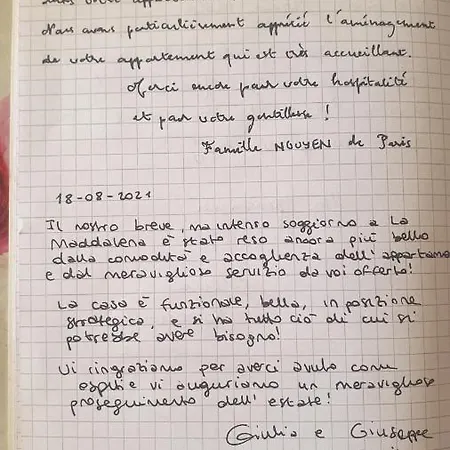 Nous avons particulièrement apprécié l'aménagement
de votre appartement qui est très accueillant.
Merci encore pour votre hospitalité
et pour votre gentillesse !
Famille NGUYEN de Paris
18-08-2021
Il nostro breve, ma intenso soggiorno a La
Maddalena è stato reso ancora più bello
dalla comodità e accoglienza dell'appartame
e dal meraviglioso servizio da voi offerto!
La casa è funzionale, bella, in posizione
strategica, e si ha tutto ciò di cui si
potrebbe avere bisogno!
Vi ringraziamo per averci avuto come
ospiti e vi auguriamo un meraviglioso
proseguimento dell'estate!
Giulia e Giuseppe